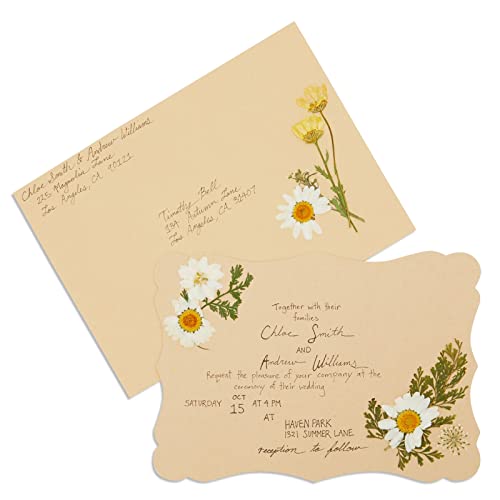 Chloe Smith & Andrew Williams
225 Magnolia Lane
Los Angeles, CA 90121
Timothy Bell
13A Autumn Lane
Los Angeles, CA 31407
Together with their
families
Chloe Smith
AND
Andrew Williams
Request the pleasure of your company at the
ceremony of their wedding
SATURDAY OCT 15 AT 4 PM
AT
HAVEN PARK
1321 SUMMER LANE
reception to follow